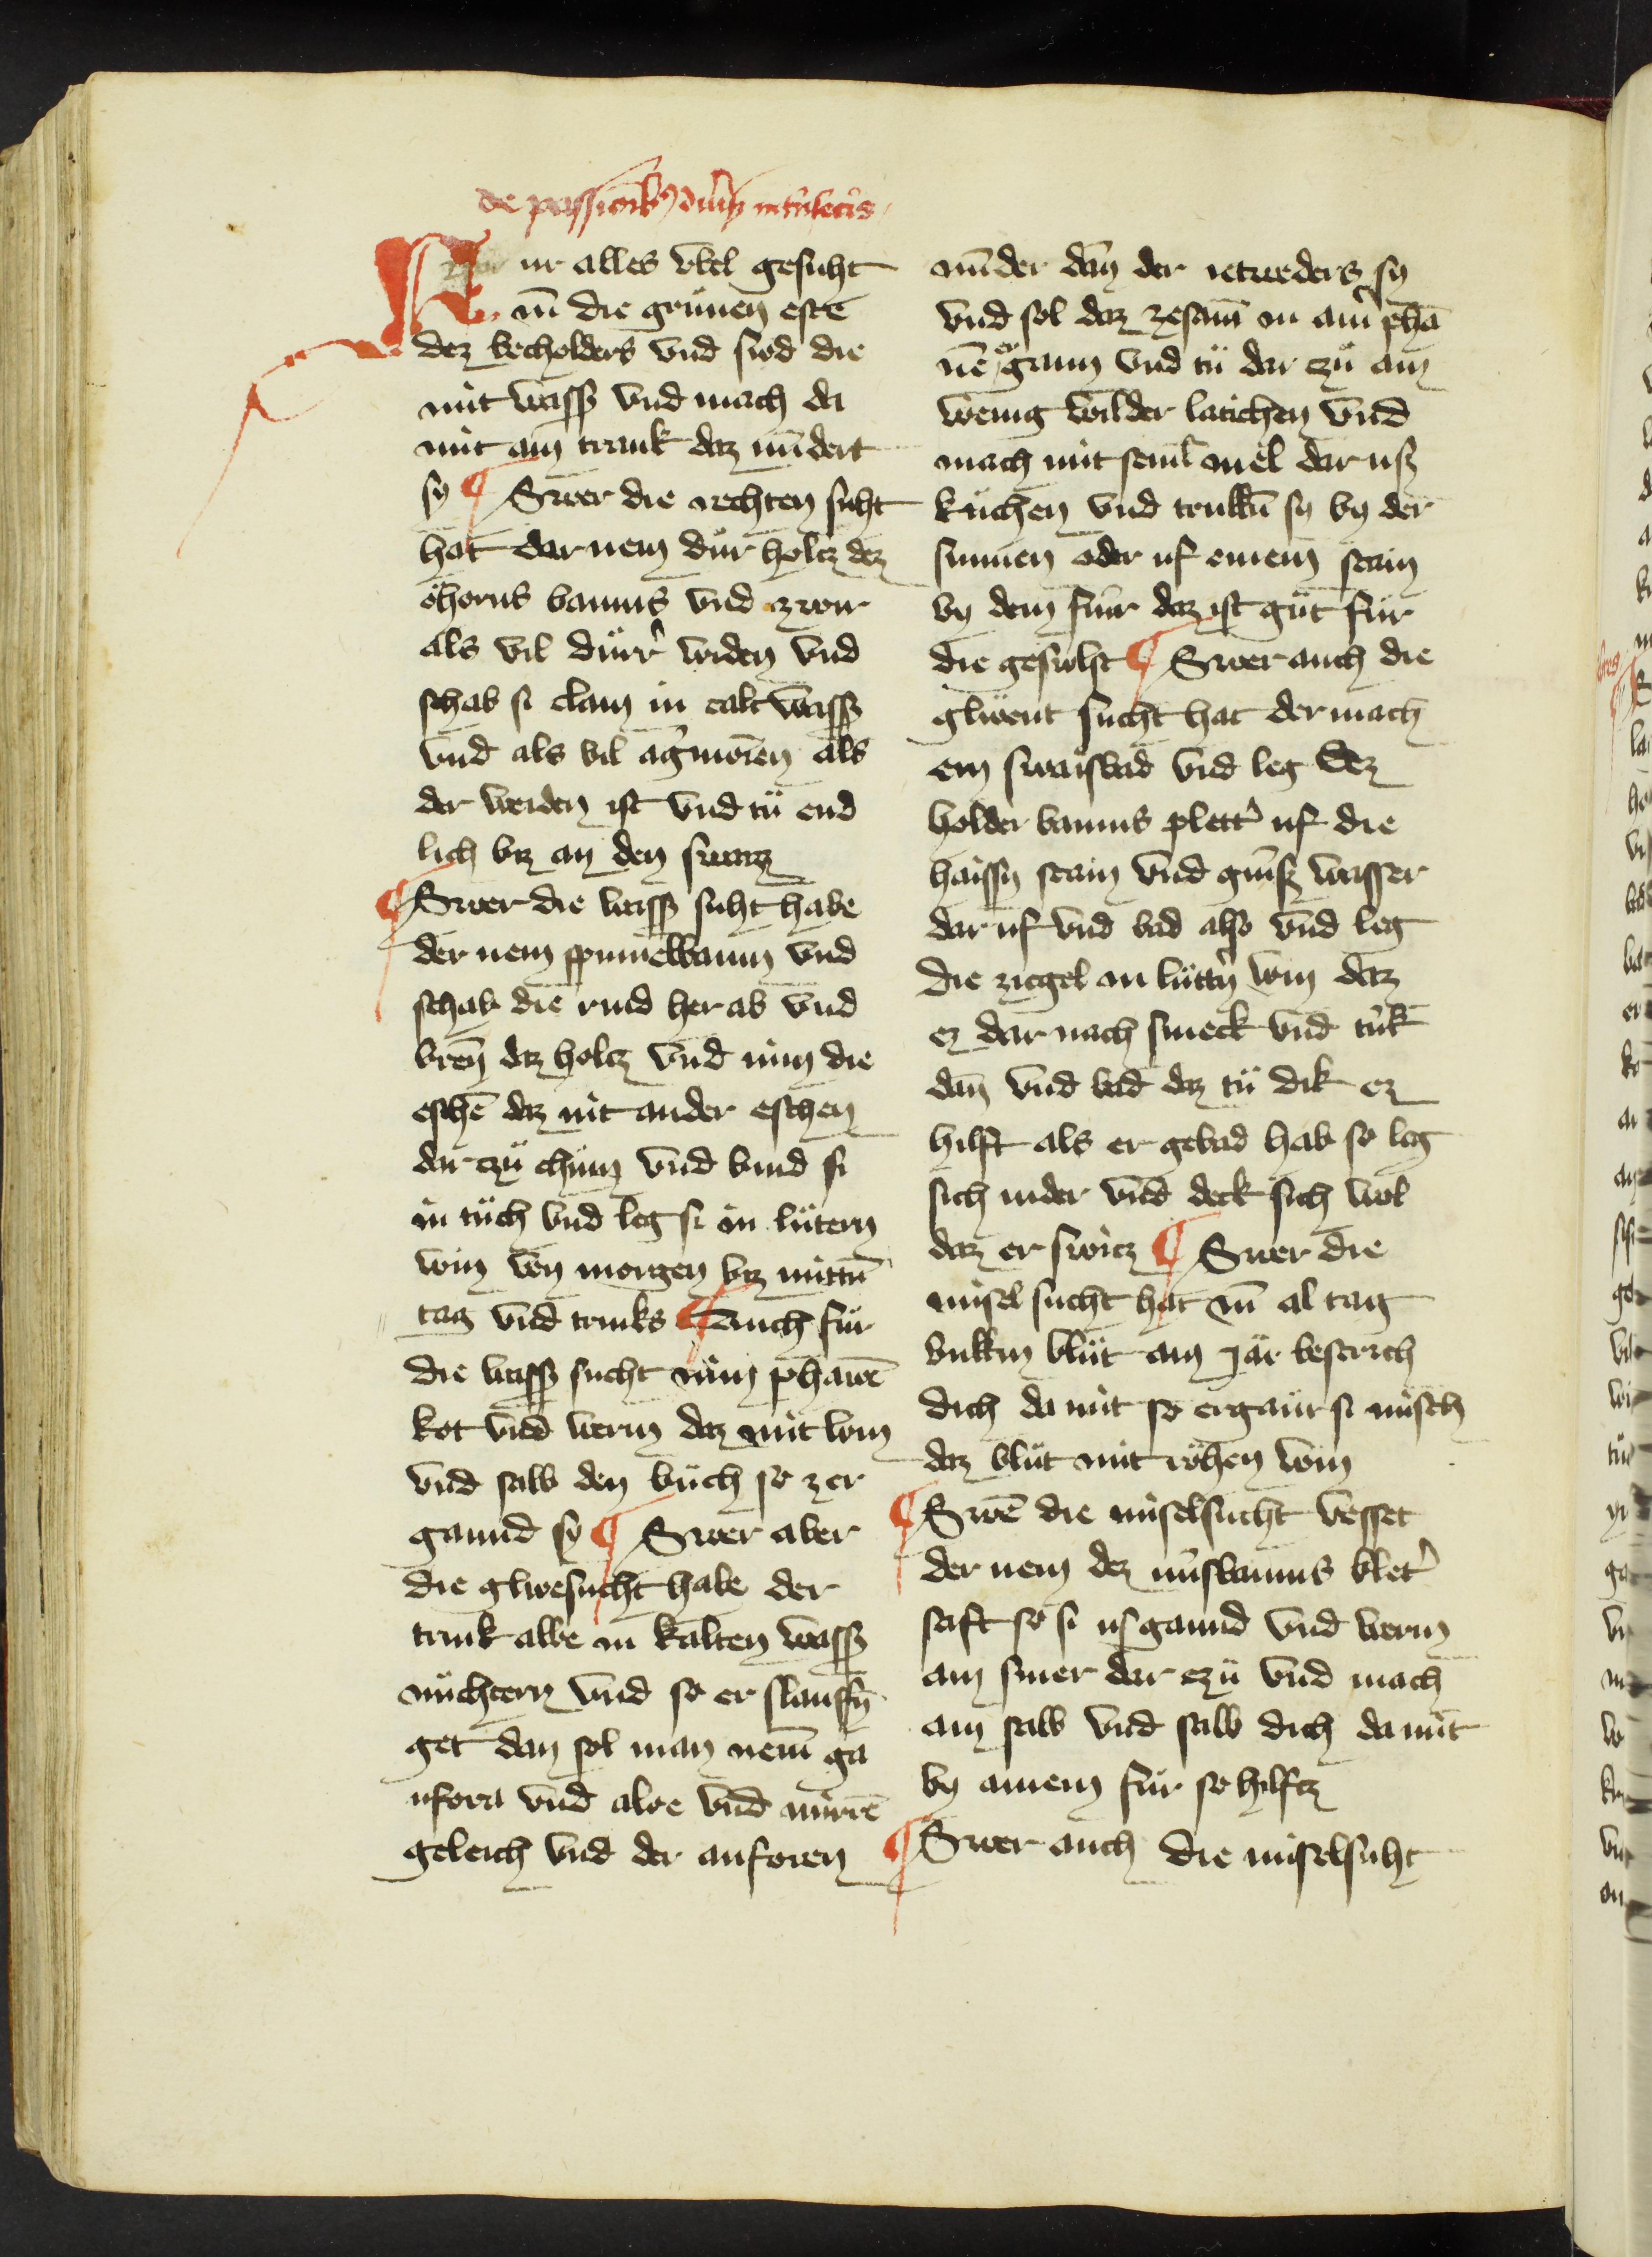 de passionib9 diu̾s intrinsecis
Fur alles v̈bel gesuht
nī die grünen estē
dez kecholders vnd sıod die
mit wass̾ vnd mach da
mit ain trank daz mīdert
sy ¶ Swer die rechten suht
hat dar nem dürr holcz dez
öhorns baums vnd zwir
als vil dürr̾ widen vnd
schab si clain in calt wass̾
vnd als vil ag̾moren als
der weiden ist vnd tü end
lich bız an den swaız
¶ Swer die wass̾ suht habe
der nem spinnelbaum vnd
schab die rind her ab vnd
bren̄ daz holcz vnd nim die
eschē daz nit ander eschen
dar czü chum vnd bind si
in tüch vnd leg si in lütern
win von morgen bız mittē
tag vnd trinks ¶ Auch für
die wass̾ sucht nim phawē
kot vnd werm daz mit win
vnd salb den büch so zer
gaund sy ¶ Swer aber
die gelwesucht habe der
trink albe in kalten wass̾
nüchtern vnd so er slauffn̄
get dan sol man nem̄ ga
nfora vnd aloe vnd mirrē
geleich vnd der anforen
mīder dan̄ der ietweders sy
vnd sol daz zesam̄ in ain̾ phā
nē gann vnd tü dar czü ain
wenig wilder latichen vnd
mach mit seml mel dar usz
küchen vnd trukkn̄ sy by der
sunnen oder uf einem stain
by dem fuir daz ist güt für
die gesulst ¶ Swer auch die
gliwent sucht hat der mach
ein swaisbad vnd leg dez
holder baums plett̾ uf die
haissn stain vnd guis wasser
dar uf vnd bad also vnd leg
die ziegel in lutt̾n win daz
ez dar nach smeck vnd trik
dan̄ vnd bad daz tü dik ez
hilft als er gebad hab so leg
sich nider vnd deck sich wol
daz er swicz ¶ Swer die
misel sucht hat nī al tag
bukkin blüt ain jar bestrich
dich da mit so ergaur si misch
daz blüt mit röhen win
¶ Swē die miselsucht besset
der nem dez nusbaums blet̾
saft so si us gaund vnd werm
ain smer dar czü vnd mach
ain salb vnd salb dich da mit
by ainem für so hilftz
¶ Swer auch die miselsuht